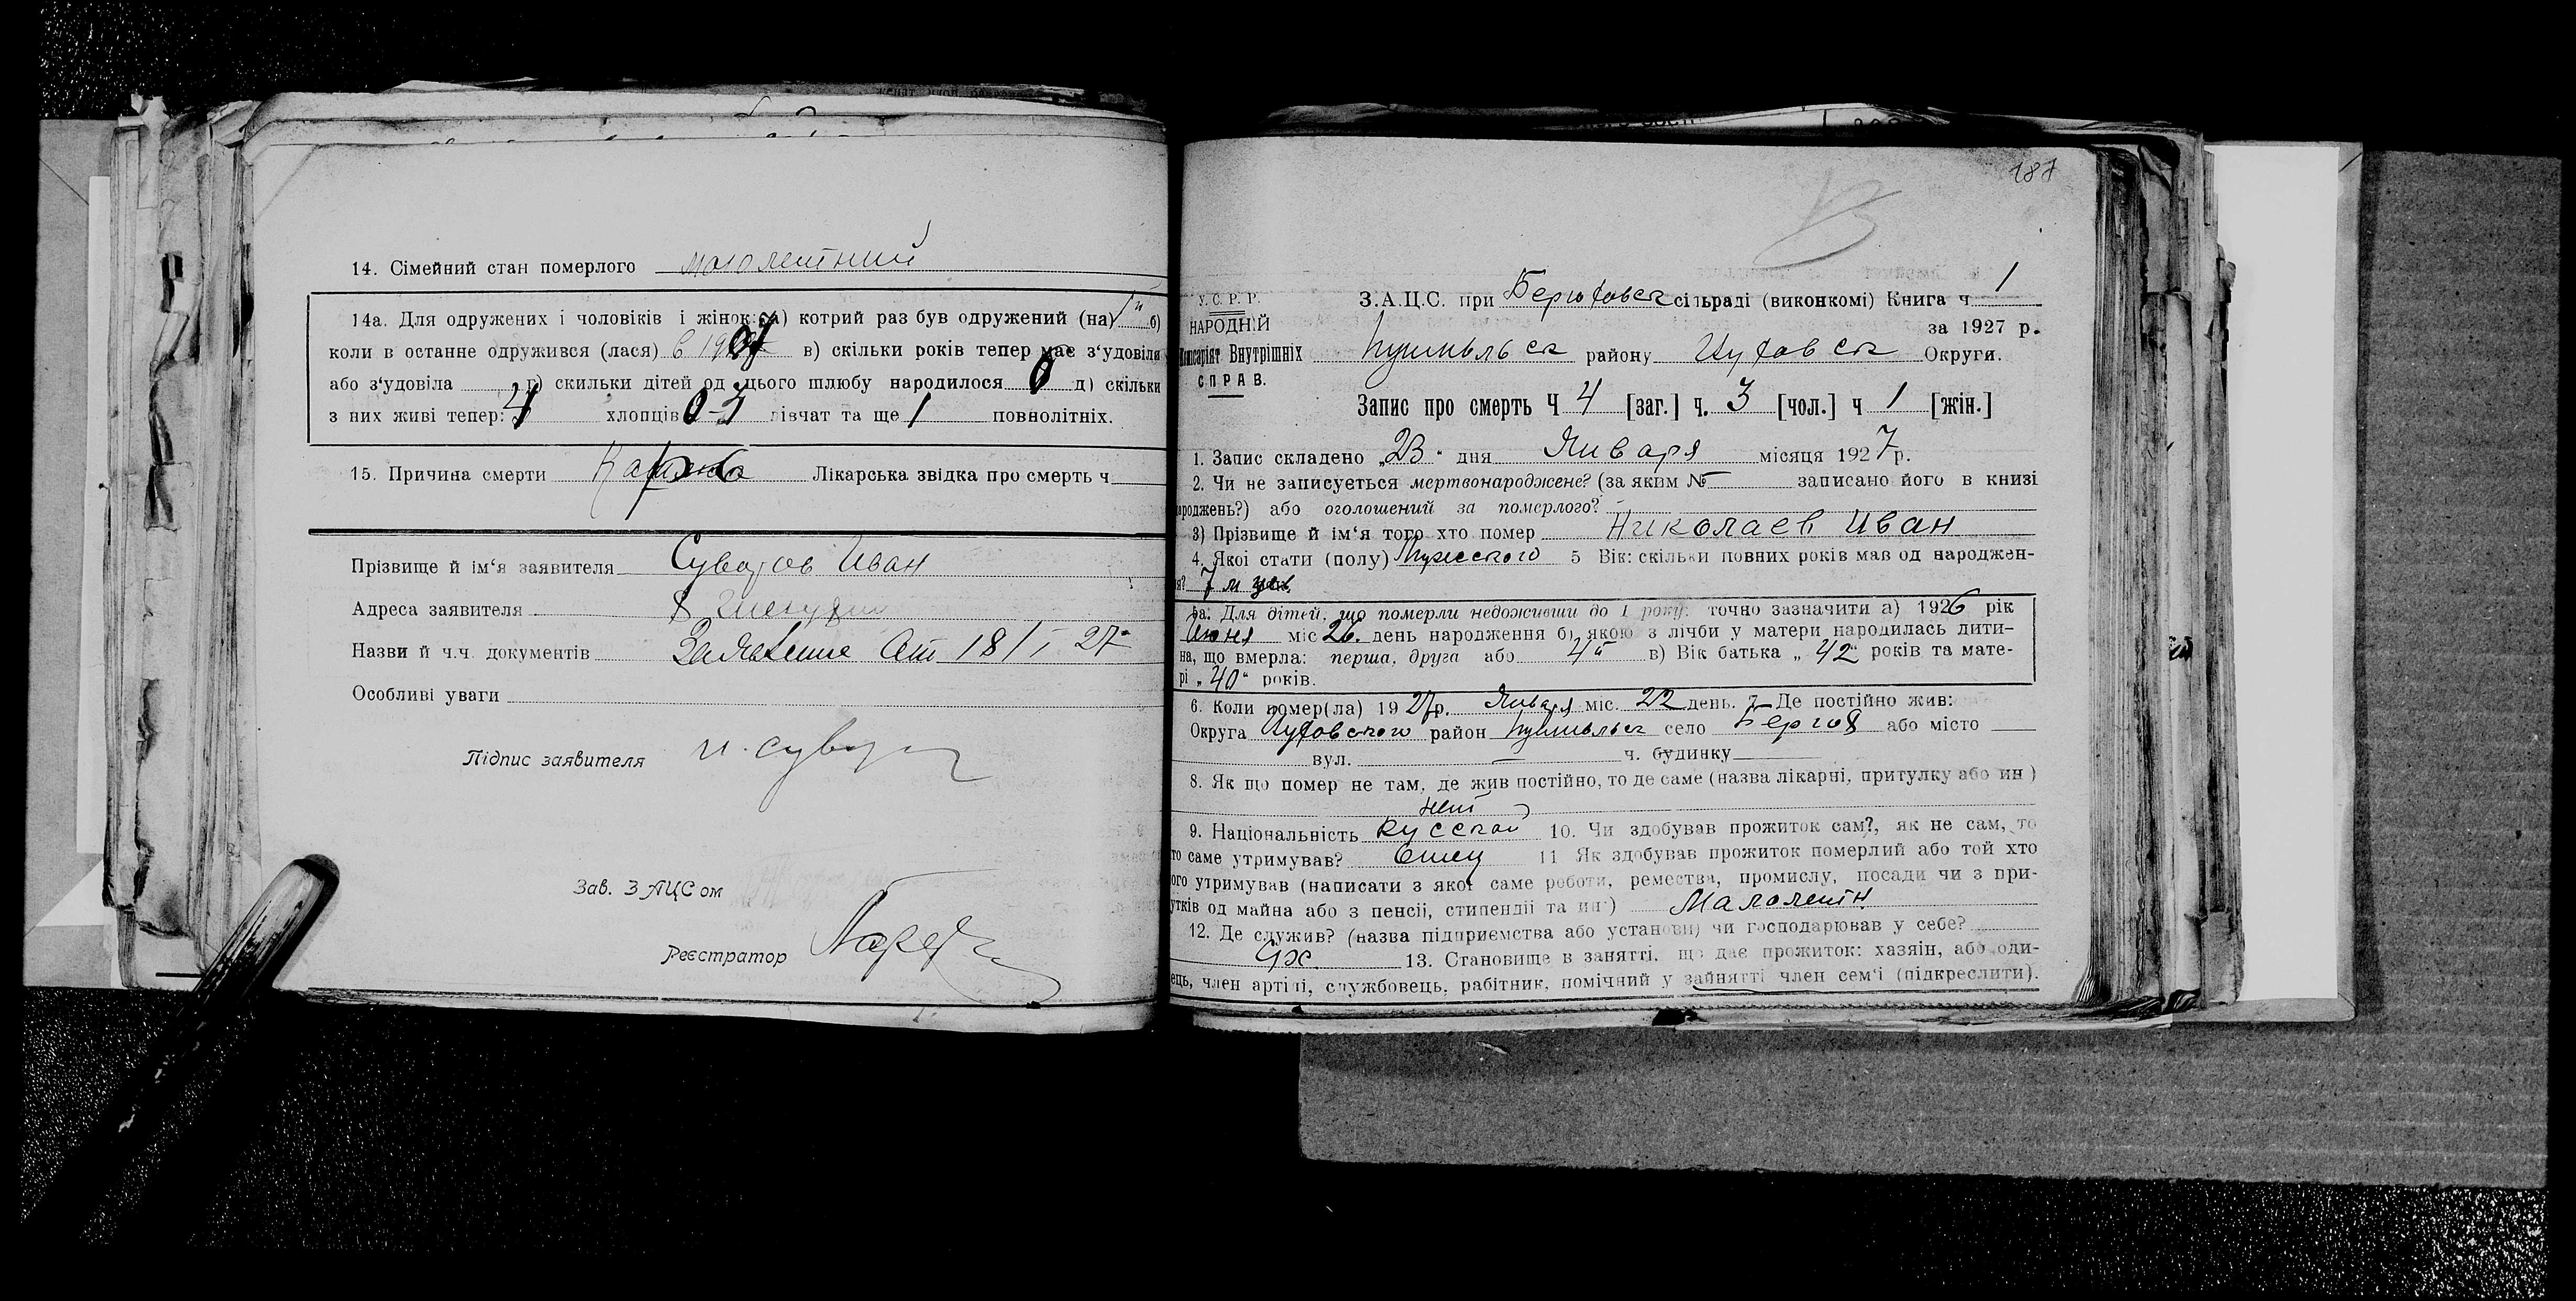 14. Сімейний стан померлого малолетний
14а. Для одружених і чоловіків і жінок: а) котрий раз був одружений (на) 1й б)
коли в останне одружився (лася) в 1907 в) скільки років тепер має з‘удовіли
або з‘удовіла г) скильки дітей од цього шлюбу народилося д) скільки
з них живі тепер: хлопців дівчат та ще 1 повнолітніх.
15. Причина смерти Лікарська звідка про смерть ч
Прізвище й ім‘я заявителя Суворов Иван
Адреса заявителя
Назви й ч.ч. документів Заявление От 18/I 27
Особливі уваги
Підпис заявителя И. Сувор
Зав. ЗАЦСом
Реєстратор
187
У. С. Р. Р.
НАРОДНІЙ
Комісаріят Внутрішніх
СПРАВ.
З.А.Ц.С. при сільраді (виконкомі) Книга ч 1
за 1927 р.
Путивльск району Округи.
Запис про смерть Ч 4 [заг.] ч. 3 [чол.] ч 1 [жін.]
1. Запис складено „23“ дня Января місяця 1927 р.
2. Чи не записується мертвонароджене? (за яким № записано його в книзі
народжень?) або оголошений за померлого?
3) Прізвище й ім‘я того хто помер Николаев Иван
4. Якої стати (полу) Мужеского 5 Вік: скільки повних років мав од народжен-
ня? 7 м
5а. Для дітей, що померли недоживши до 1 року: точно зазначити а) 1926 рік
Июня міс 26 день народження б) якою з лічби у матери народилась дити-
на, що вмерла: перша, друга або 4й в) Вік батька „42“ років та мате-
рі „40“ років.
6. Коли помер(ла) 1927р. Января міс. 22 день. 7 Де постійно жив:
Округа район Путивльск село або місто
вул. — ч. будинку
8. Як що помер не там, де жив постійно, то де саме (назва лікарні, притулку або ин )
нет
9. Національність Русской 10. Чи здобував прожиток сам?, як не сам, то
хто саме утримував? Отец 11 Як здобував прожиток померлий або той хто
його утримував (написати з якої саме роботи, ремества, промислу, посади чи з при-
бутків од майна або з пенсії, стипендії та ин:) Малолетн
12. Де служив? (назва підприємства або установи) чи господарював у себе?
13. Становище в занятті, що дає прожиток: хазяїн, або оди-
нець, член артілі, службовець, рабітник, помічний у зайнятті член сем‘ї (підкреслити).